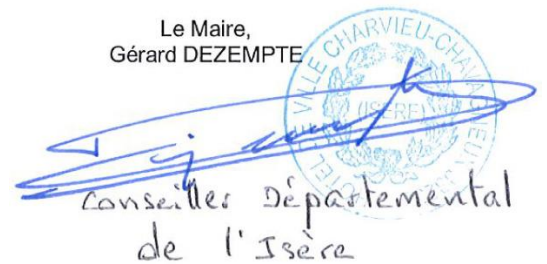 Le Maire,
Gérard DEZEMPTE
HÔTEL DE VILLE CHARVIEU-CHAVAGNEUX
(ISÈRE)
Conseiller Départemental
de l'Isère